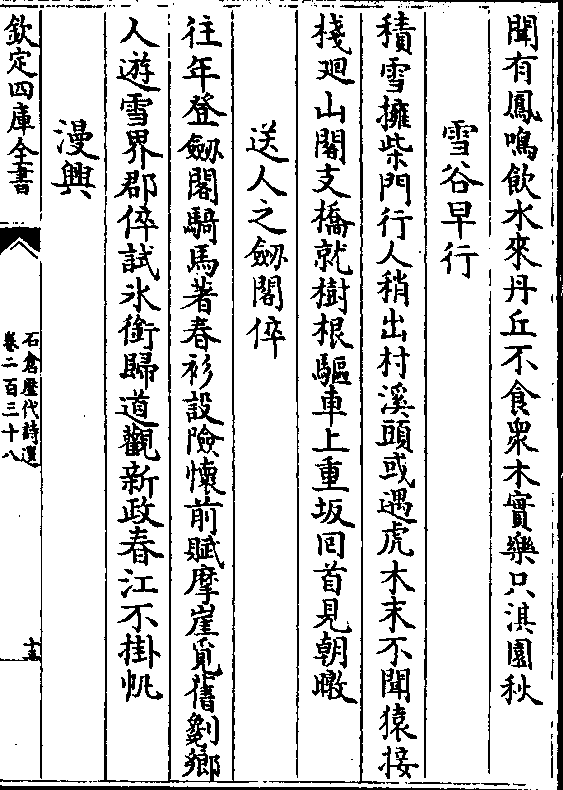 聞有鳳鳴飲水來丹丘不食衆木實樂只淇園秋
雪谷早行
積雪擁柴門行人稍出村溪頭或遇虎木末不聞猿接
棧廻山閣支橋就樹根驅車上重坂囘首見朝暾
送人之劔閣倅
往年登劔閣騎馬著春衫設險懷前賦摩崖覓舊劖鄉
人遊雪界郡倅試氷銜歸道觀新政春江不掛帆
漫興
欽定四庫全書
石倉歷代詩選
卷二百三十八
十五